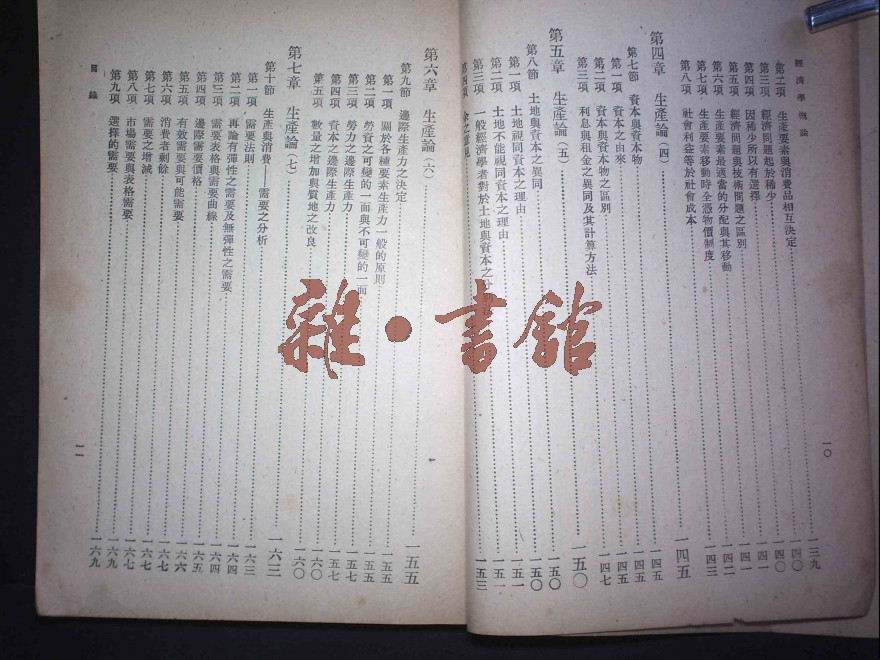 經濟學概論
一〇
第二項 生產要素與消費品相互決定 一三九
第三項 經濟問題起於稀少 一四〇
第四項 因稀少所以有選擇 一四一
第五項 經濟問題與技術問題之區別 一四一
第六項 生產要素最適當的分配與其移動 一四二
第七項 生產要素移動時全憑物價制度 一四三
第八項 社會利益等於社會成本
第四章 生產論(四) 一四五
第七節 資本與資本物 一四五
第一項 資本之由來 一四五
第二項 資本與資本物之區別 一四七
第三項 利息與租金之異同及其計算方法
第五章 生產論(五) 一五〇
第八節 土地與資本之異同 一五〇
第一項 土地視同資本之理由 一五〇
第二項 土地不能視同資本之理由 一五一
第三項 一般經濟學者對於土地與資本之
第四項 余之意見 一五三
第六章 生產論(六) 一五五
第九節 邊際生產力之決定 一五五
第一項 關於各種要素生產力一般的原則 一五五
第二項 勞資之可變的一面與不可變的一面 一五五
第三項 勞力之邊際生產力 一五七
第四項 資本之邊際生產力 一五七
第五項 數量之增加與質地之改良 一六〇
第七章 生產論(七) 一六三
第十節 生產與消費——需要之分析
第一項 需要法則 一六三
第二項 再論有彈性之需要及無彈性之需要 一六四
第三項 需要表格與需要曲線 一六四
第四項 邊際需要價格 一六五
第五項 有效需要與可能需要 一六六
第六項 消費者剩餘 一六七
第七項 需要之增減 一六七
第八項 市場需要與表格需要 一六九
第九項 選擇的需要 一六九
目錄
一一
雜·書館